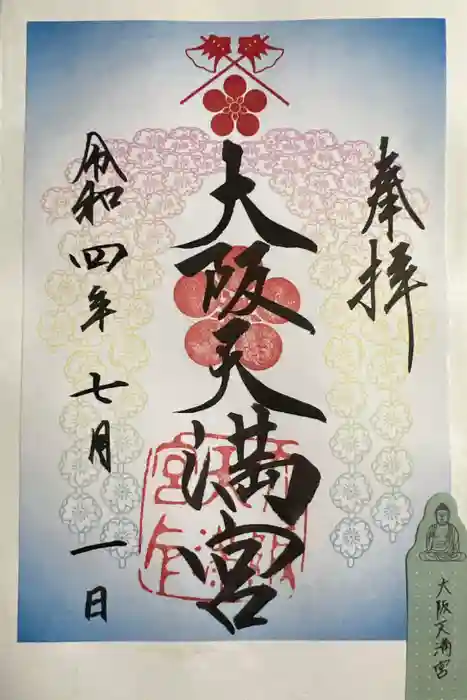 奉拝
大阪天満宮
令和四年七月一日
大阪天満宮